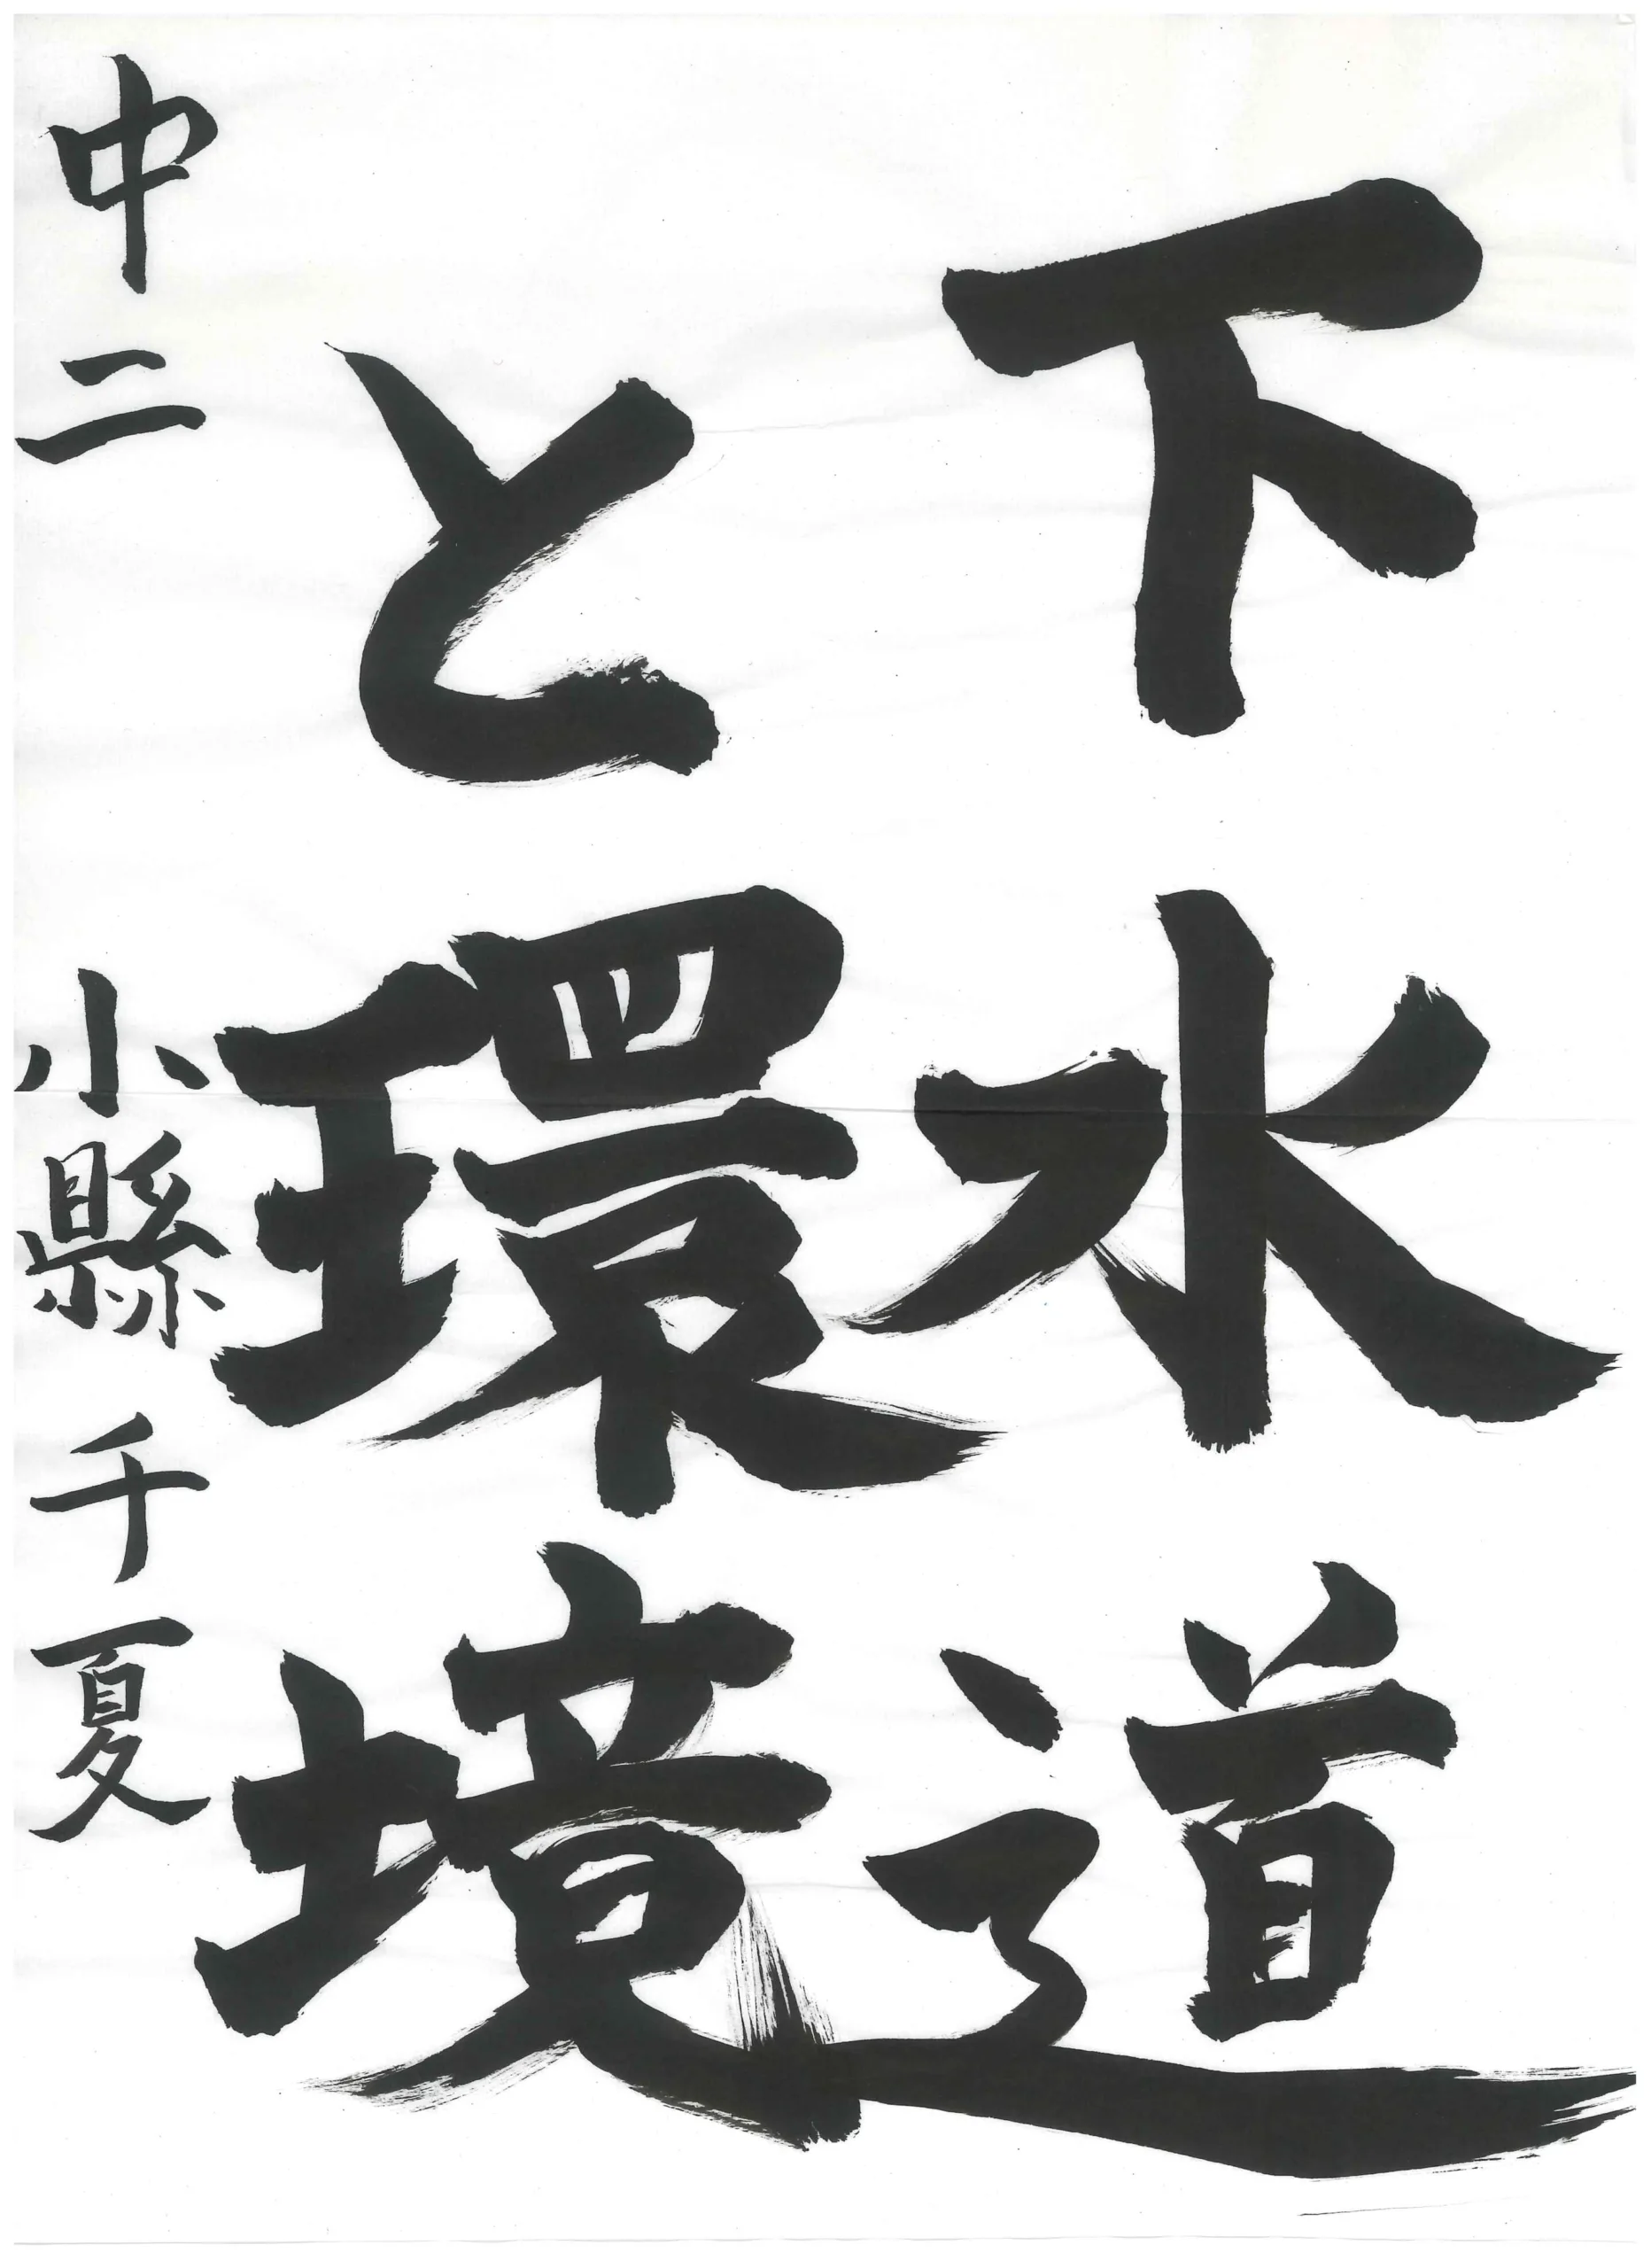 下水道
と環境
中二 小縣千夏